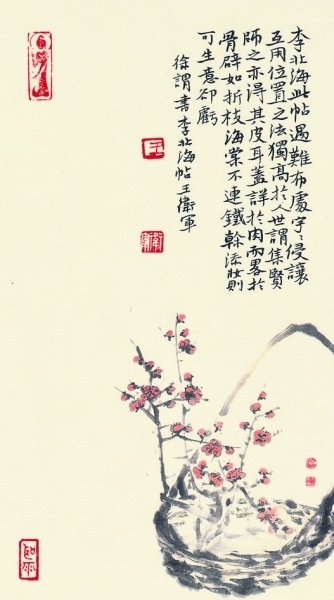 李北海此帖遇難布處字〻侵讓
互用位置之法獨高於人世謂集賢
師之亦得其皮耳蓋詳於肉而畧於
骨辟如折枝海棠不連鐵幹添妝則
可生意卻虧
徐謂書李北海帖王衛軍
王